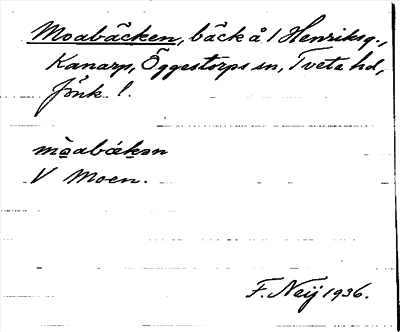 Moabäcken, bäck å 1 Henriksg.,
Kanarp, Öggestorps sn, Tveta hd,
Jönk. l.
mo̲abäk̲ən
V Moen.
F. Neij 1936.